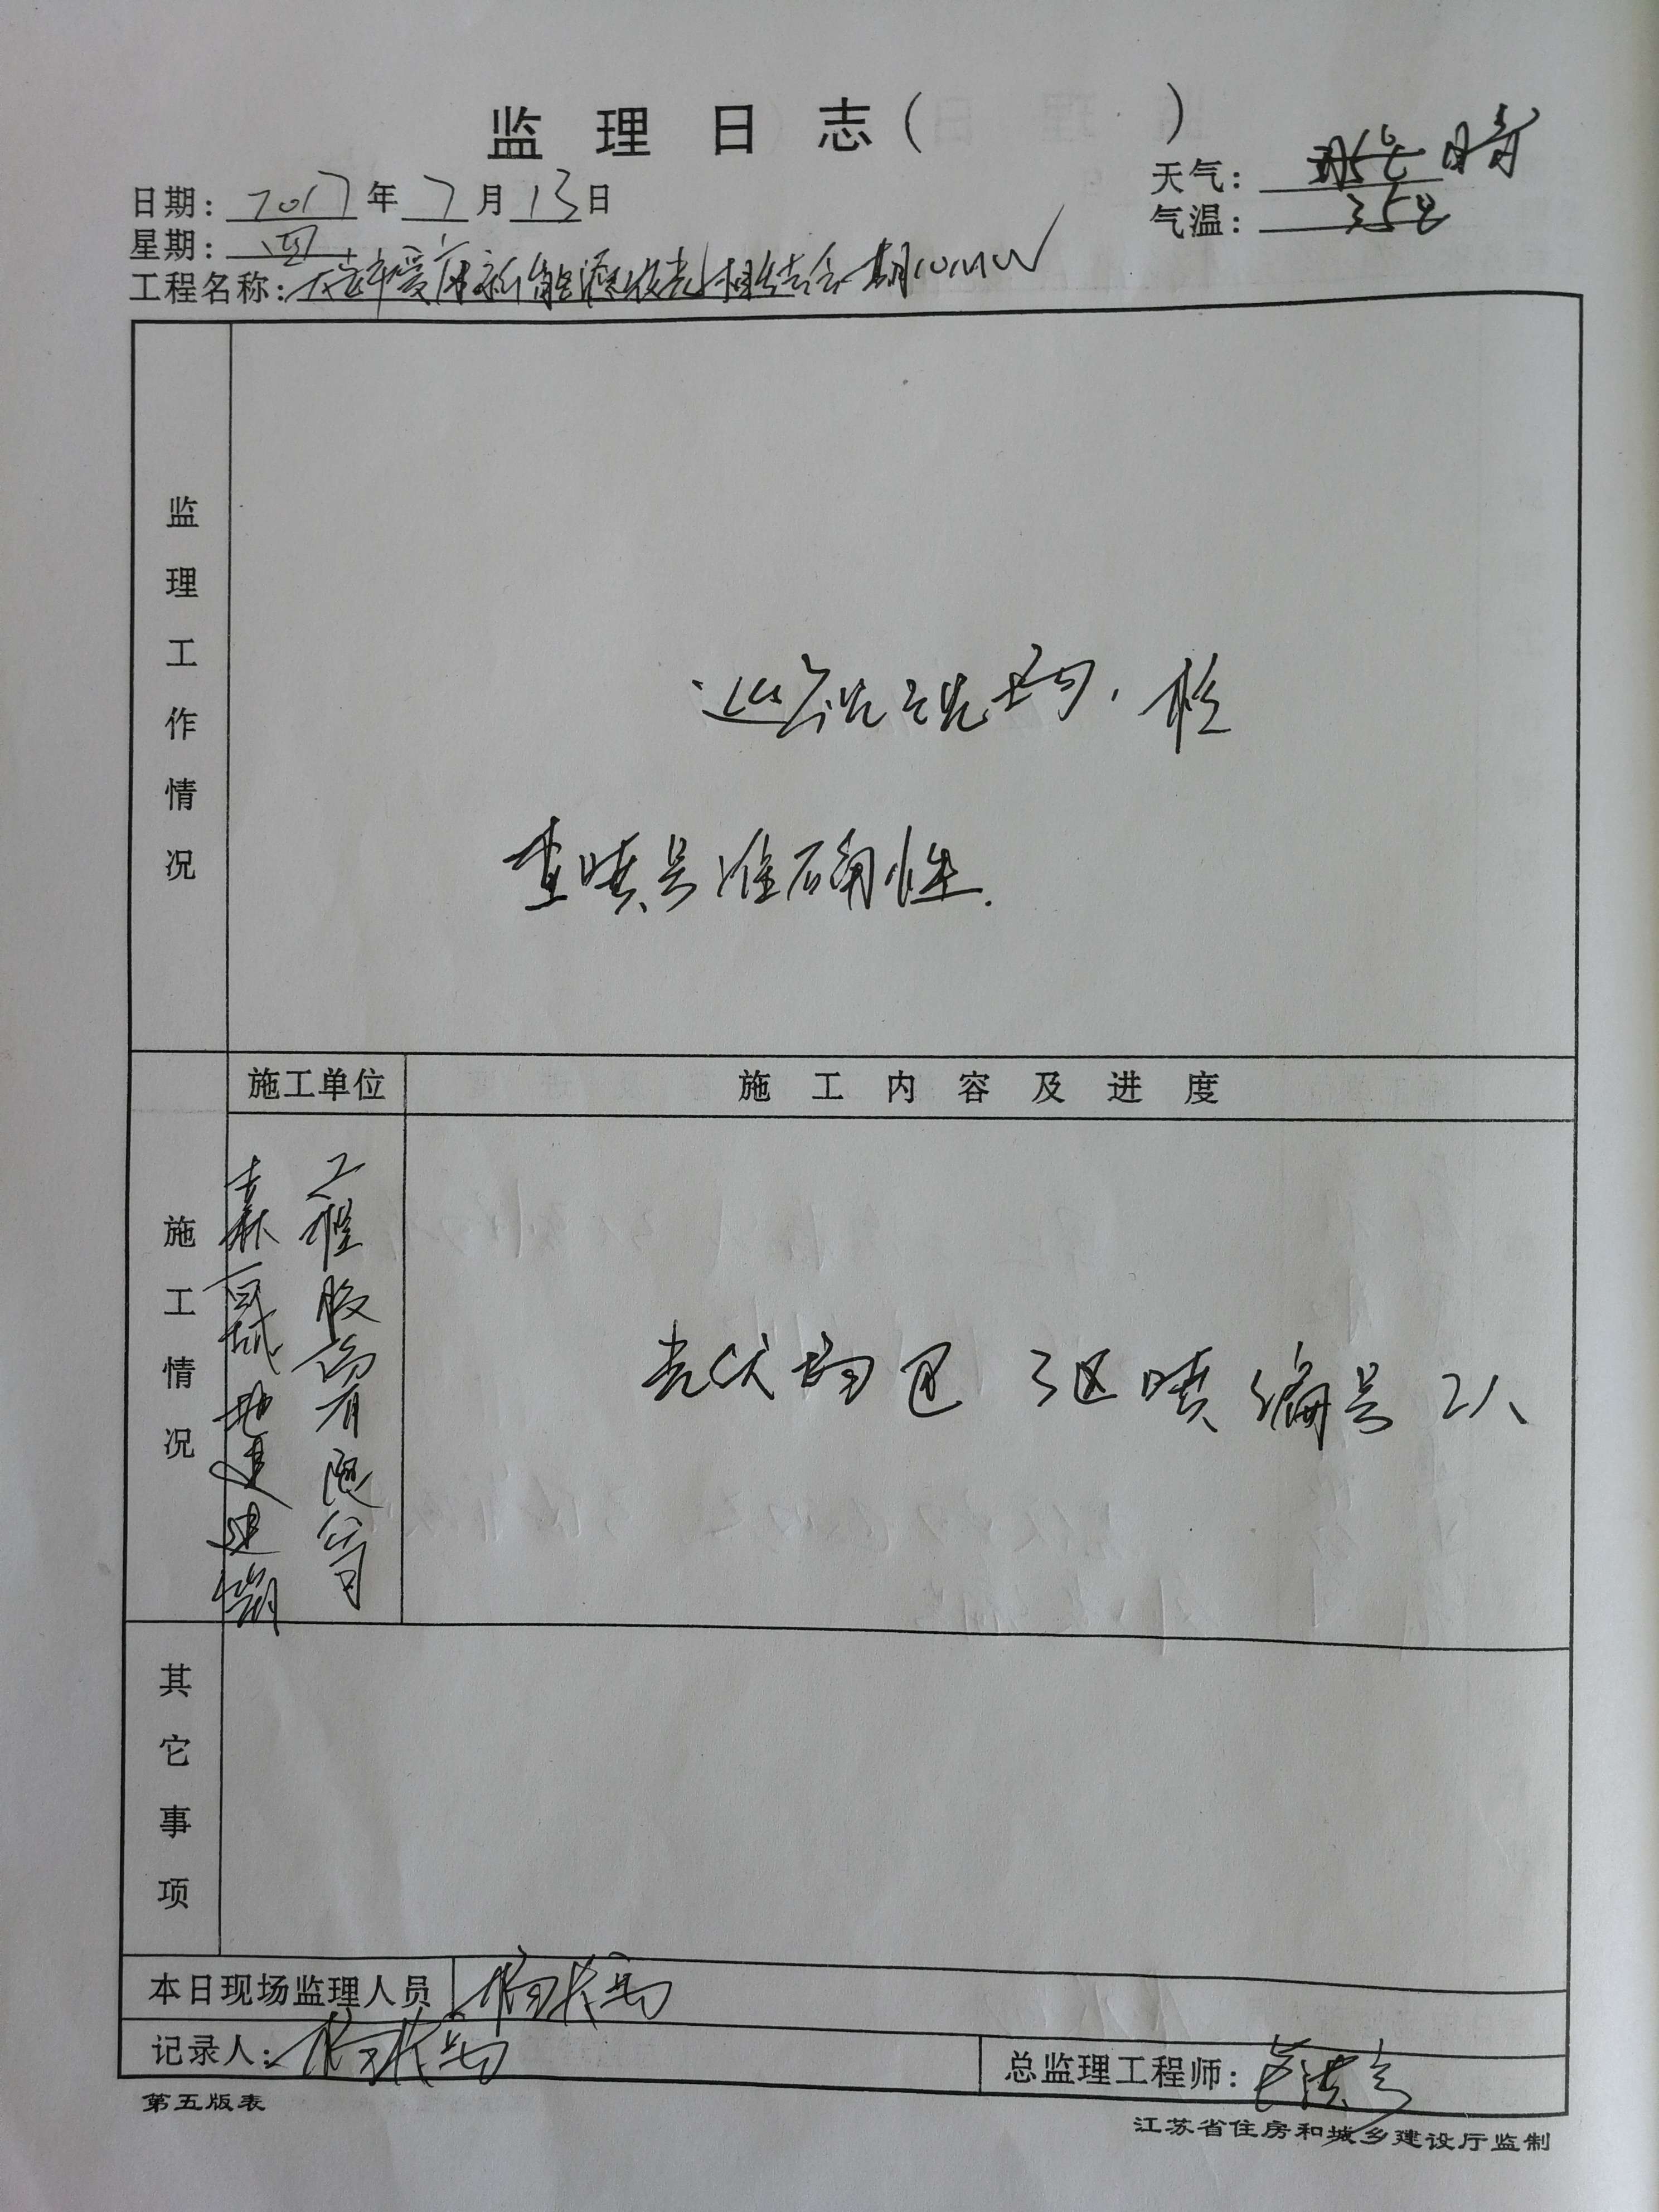 监理日志（ ）
日期：2017年7月13日
天气：晴
星期：四
气温：35℃
工程名称：新能源 相结合一期10MW
监理工作情况
巡视现场，检
查喷号准确性.
施工单位
施工内容及进度
施工情况
工程股份有限公司
光伏场区 3区喷编号 2人
其它事项
本日现场监理人员
记录人：
总监理工程师：
第五版表
江苏省住房和城乡建设厅监制